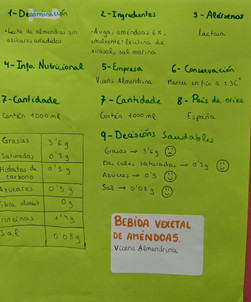 1-Denominación
·Leite de almendras sin
azúcares anadidos
2-Ingredientes
·Auga, améndoas 6%,
emulxente: lecitina de
xirasol, sal mariña
3-Alérxenos
lactosa
4-Info. Nutricional
5-Empresa
Vicens Almendrina
6-Conservación
Manter en frío a ≤ 30°
7-Cantidade
Contén 1000 ml
7-Cantidade
Contén 1000 ml
8-País de orixe
España
Grasas 3'6g
Saturadas 0'3g
Hidratos de
carbono 0'5g
Azúcares 0'5g
Fibra 0g
Proteínas 1'4g
Sal 0'08g
9-Decisións Saudables
Grasas → 3'6g
Das cales saturadas → 0'3g
Azúcares → 0'5g
Sal → 0'08g
BEBIDA VEXETAL
DE AMÉNDOAS.
Vicens Almendrina